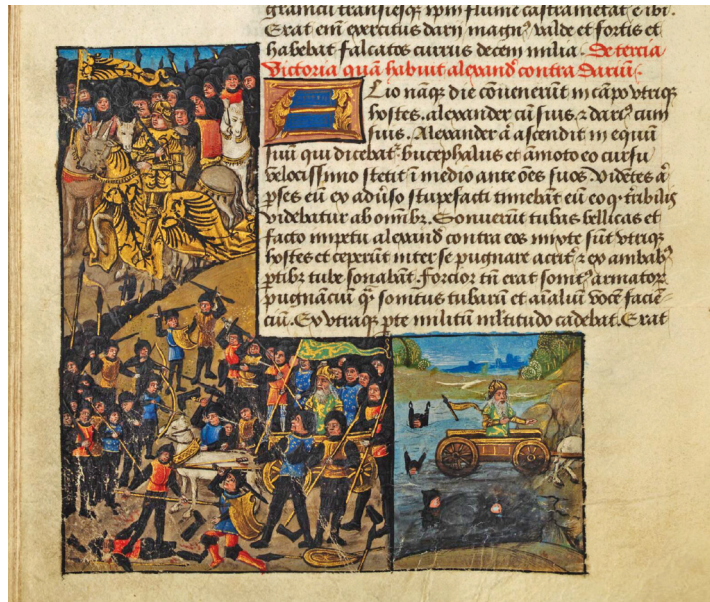 gramicū transiesq; ipm̄ flume castrametat᷒ ē ibi.
Erat em̄ exercitus darii magn᷒ valde et fortis et
habebat falcatos currus decem milia. De tercia
victoria quā habuit alexand᷒ contra dariū.
Alio nāq; die cōuenerūt in cāpo vtriq;
hostes. alexander cū suis ⁊ dari᷒ cum
suis. Alexander ā ascendit in equū
suū qui dicebat᷒ bucephalus et āmoto eo cursu
velocissimo stetit ī medio ante oēs suos Vidētes ā
pse eū ex aduso stupefacti timebāt eū eo q; t̄ribilis
videbatur ab omīb᷒. Sonuerūt tubas bellicas et
facto impetu alexand᷒ contra eos mixte sūt vtriq;
hostes et ceperūt inter se pugnare acrit᷒ ⁊ ex ambab᷒
ptib᷒ tube sonabāt. Forcior tn̄ erat sonit᷒ armator᷒
pugnāciū q̄ sonitus tubarū et aīaliū vocē faciē
ciū. Ex vtraq; pte militū mltitudo cadebat. Erat